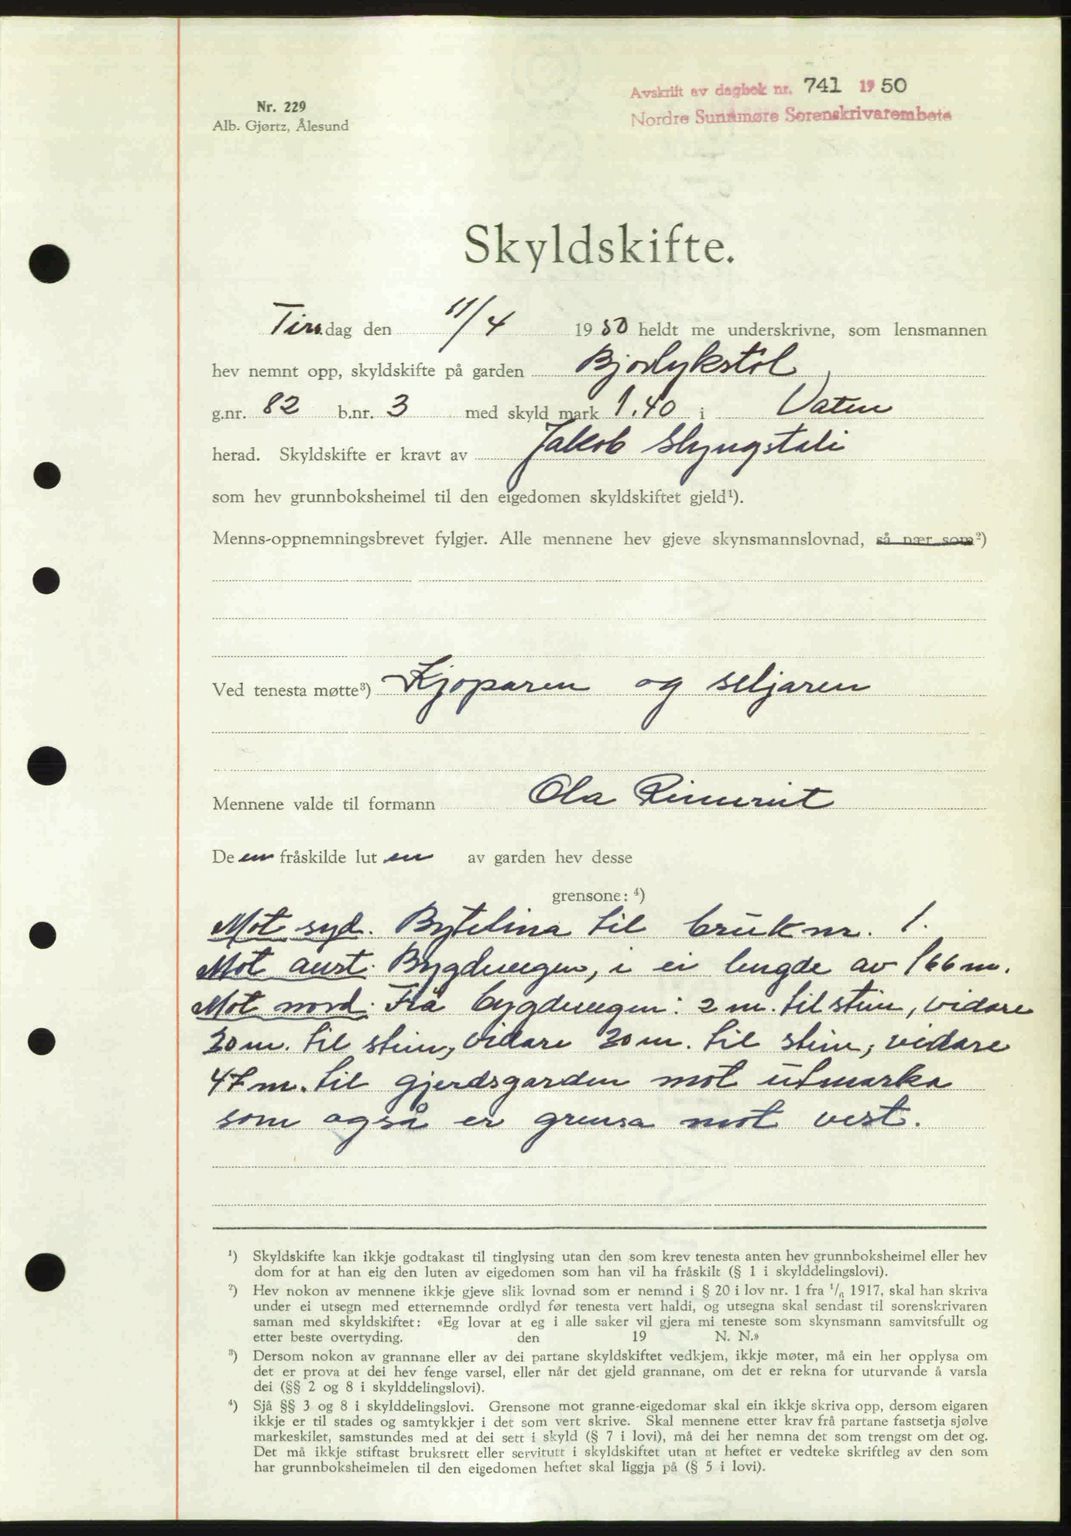 Avskrift av dagbok nr. 741 1950
Nordre Sunnmøre Sorenskrivarembete
Nr. 229
Alb. Gjørtz, Ålesund
Skyldskifte.
Tirsdag den 11/4 1950 heldt me underskrivne, som lensmannen
hev nemnt opp, skyldskifte på garden Bjorlykstøl,
g.nr. 82 b.nr. 3 med skyld mark 1.40 i Vatne
herad. Skyldskifte er kravt av Jakob Slyngstali
som hev grunnboksheimel til den eigedomen skyldskiftet gjeld¹).
Menns-oppnemningsbrevet fylgjer. Alle mennene hev gjeve skynsmannslovnad, så nær som²)
Ved tenesta møtte³) Kjøparen og seljaren
Mennene valde til formann Ola
De en fråskilde lut en av garden hev desse
grensone: ⁴)
Mot syd. Bytelina til bruk nr. 1.
Mot aust. Bygdevegen, i ei lengde av 166 m.
Mot nord. Frå bygdevegen: 2 m. til stein, vidare
30 m. til stein, vidare 30 m. til stein, vidare
47 m. til gjerdsgarden mot utmarka
som også er grensa mot vest.
¹) Skyldskifte kan ikkje godtakast til tinglysing utan den som krev tenesta anten hev grunnboksheimel eller hev
dom for at han eig den luten av eigedomen som han vil ha fråskilt (§ 1 i skylddelingslovi).
²) Hev nokon av mennene ikkje gjeve slik lovnad som er nemnd i § 20 i lov nr. 1 fra 1/6 1917, skal han skriva
under ei utsegn med etternemnde ordlyd før tenesta vert haldi, og utsegna skal sendast til sorenskrivaren
saman med skyldskiftet: «Eg lovar at eg i alle saker vil gjera mi teneste som skynsmann samvitsfullt og
etter beste overtyding. den 19 N. N.»
³) Dersom nokon av grannane eller av dei partane skyldskiftet vedkjem, ikkje møter, må ein her opplysa om
det er prova at dei hev fenge varsel, eller når det gjeld grannane, om det er rekna for uturvande å varsla
dei (§§ 2 og 8 i skylddelingslovi).
⁴) Sjå §§ 3 og 8 i skylddelingslovi. Grensone mot granne-eigedomar skal ein ikkje skriva opp, dersom eigaren
ikkje er til stades og samtykkjer i det som vert skrive. Skal mennene etter krav frå partane fastsetja sjølve
markeskilet, samstundes med at dei sett i skyld (§ 7 i lovi), må dei her nemna det som trengst om det og.
Det må ikkje stiftast bruksrett eller servitutt i skyldskiftet utan at heftet er vedteke skriftleg av den som
har grunnboksheimelen til den eigedomen heftet skal liggja på (§ 5 i lovi).